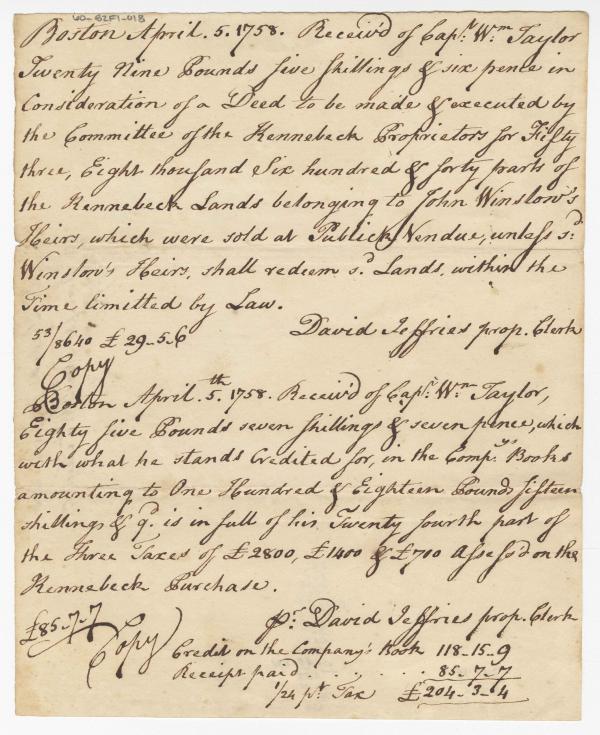 60-82F1-018
Boston April. 5. 1758. Receiv'd of Capt. Wm. Taylor
Twenty Nine Pounds five shillings & six pence in
Consideration of a Deed to be made & executed by
the Committee of the Kennebeck Proprietors for Fifty
three, Eight thousand Six hundred & forty parts of
the Kennebeck Lands belonging to John Winslow's
Heirs, which were sold at Publick Vendue, unless sd.
Winslow's Heirs, shall redeem sd. Lands, within the
Time limitted by Law.
53/8640 £ 29-5-6 David Jeffries prop. Clerk
Copy
Boston April. 5th. 1758. Receiv'd of Capt. Wm. Taylor,
Eighty five Pounds seven shillings & seven pence, which
with what he stands Credited for, in the Compys. Books
amounting to One Hundred & Eighteen Pounds fifteen
shillings & 9d. is in full of his Twenty fourth part of
the Three Taxes of £2800, £1400 & £700 Assess'd on the
Kennebeck Purchase.
£85-7-7 pr. David Jeffries prop. Clerk
Copy
Credit on the Company's Book 118-15-9
Receipt paid . . . . 85-7-7
1/24 pt. Tax £204-3-4